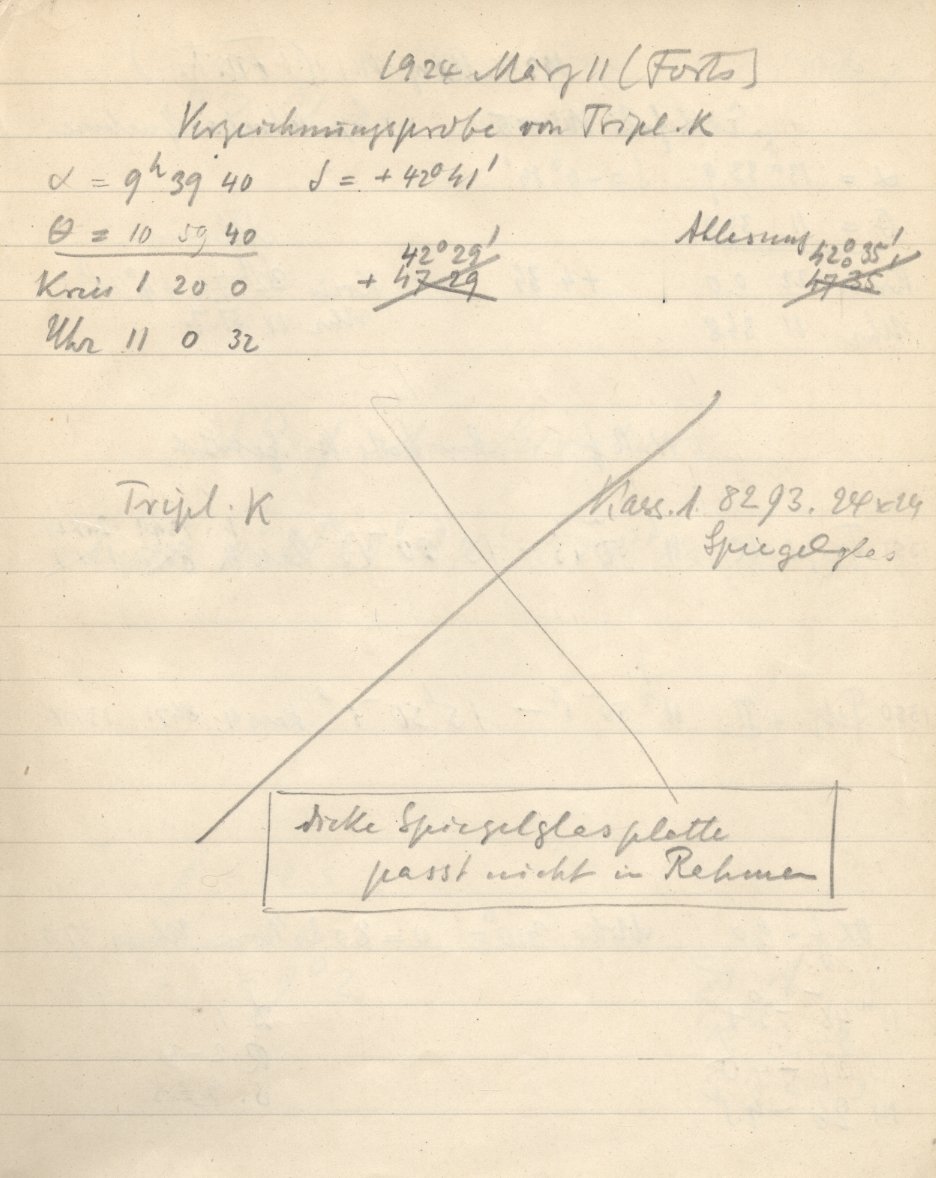 1924 März 11 (Forts)
Verzeichnungsprobe von Tripl. K
α = 9h 39 40 δ = + 42° 41'
θ = 10 59 40 Ablesung
42° 29' 42° 35'
Kreis 1 20 0 + 47 29 47° 35'
Uhr 11 0 32
Tripl. K Kass. 1 8293. 24x24
Spiegelglas
dicke Spiegelglasplatte
passt nicht in Rahmen